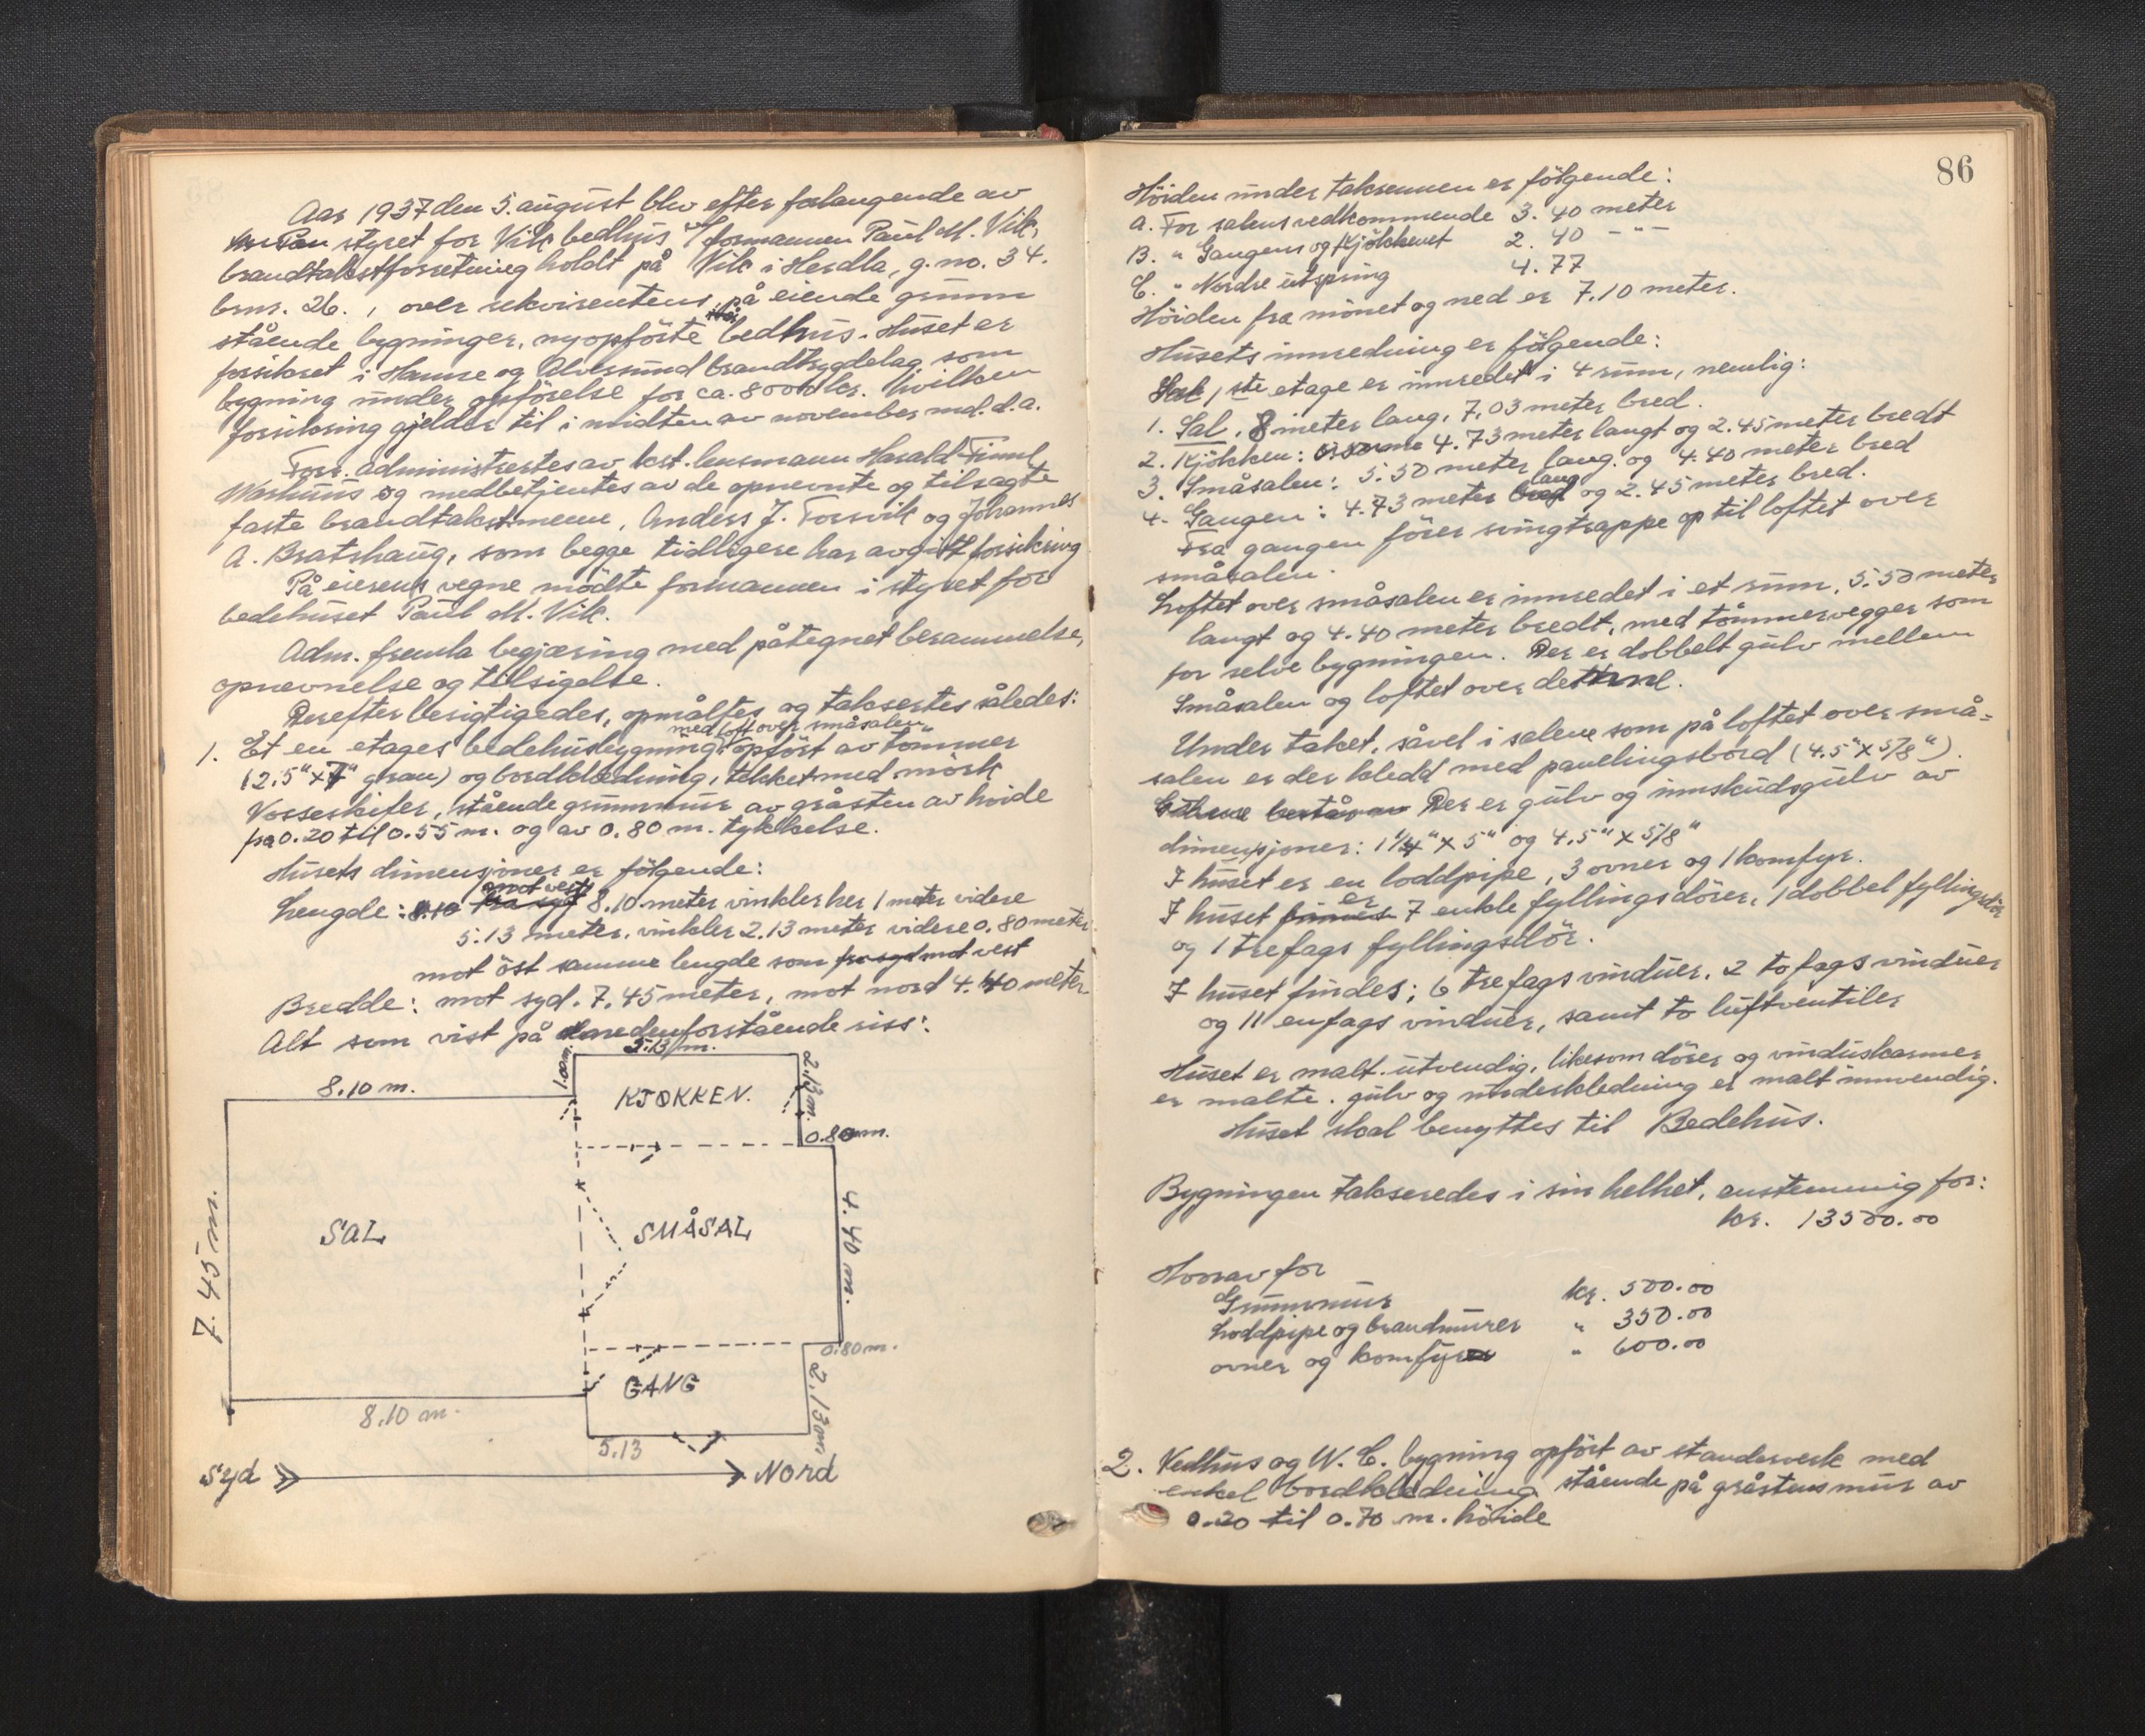 Aar 1937 den 5. august blev efter forlangende av
styret for Vik bedhus ved formannen Paul M. Vik,
brandtakstforretning holdt på Vik i Herdla, g.no. 34.
brnr. 26., over rekvirentens på eiende grunn
stående bygninger, nyopførte bedhus. Huset er
forsikret i Hamre og Alversund brandtrygdelag som
bygning under opførelse for ca. 8000 kr. hvilken
forsikring gjelder til i midten av november md. d.a.
Forr. administrertes av kst. lensmann Harald Finne
og medbetjentes av de opnevnte og tilsagte
faste brandtakstmenn, Anders J. Torsvik og Johannes
A. Bratshaug, som begge tidligere har avgitt forsikring
På eierens vegne mødte formannen i styret for
bedehuset Paul M. Vik.
Adm. fremla begjæring med påtegnet berammelse,
opnevnelse og tilsigelse.
Derefter besigtigedes, opmåltes og taksertes således:
med loft over småsalen
1. Et en etages bedehusbygning opført av tømmer
(2.5" x 7" gran) og bordklædning, tekket med mørk
Vosseskifer, stående grunnmur av gråsten av høide
fra 0.20 til 0.55 m. og av 0.80 m. tykkelse.
Husets dimensjoner er følgende:
mot vest
Lengde: 8.10 fra syd 8.10 meter vinkler her 1 meter videre
5.13 meter, vinkler 2.13 meter videre 0.80 meter
mot øst samme lengde som fra syd mot vest
Bredde: mot syd. 7.45 meter, mot nord 4.40 meter
Alt som vist på nedenforstående riss:
5.13 m.
1.00 m.
2.13 m.
8.10 m.
KJØKKEN.
0.80 m.
7.45 m.
SAL
SMÅSAL
4.40 m.
0.80 m.
GANG
2.13 m
8.10 m.
5.13
Syd Nord
86
Høiden under taksrennen er følgende:
A. For salens vedkommende 3.40 meter
B. " Gangens og Kjøkkenet 2.40 - " -
C. " Nordre utspring 4.77
Høiden fra mønet og ned er 7.10 meter.
Husets innredning er følgende:
1ste etage er innredet i 4 rum, nemlig:
1. Sal, 8 meter lang, 7.03 meter bred.
2. Kjøkken: 4.73 meter langt og 2.45 meter bredt
3. Småsalen: 5.50 meter lang. og 4.40 meter bred
lang
4. Gangen: 4.73 meter bred og 2.45 meter bred.
Fra gangen fører svingtrappe op til loftet over
småsalen.
Loftet over småsalen er innredet i et rum, 5.50 meter
langt og 4.40 meter bredt, med tømmervegger som
for selve bygningen. Der er dobbelt gulv mellem
Småsalen og loftet over denne.
Under taket, såvel i salene som på loftet over små=
salen er der kledd med panelingsbord (4.5" x 5/8").
Gulvene består av Der er gulv og innskudsgulv av
dimensjoner: 1 1/4" x 5" og 4.5" x 5/8"
I huset er en loddpipe, 3 ovner og 1 komfyr.
er
I huset finnes 7 enkle fyllingsdører, 1 dobbel fyllingsdør
og 1 trefags fyllingsdør.
I huset findes; 6 trefags vinduer, 2 tofags vinduer
og 11 enfags vinduer, samt to luftventiler
Huset er malt. utvendig, likesom dører og vinduskarmer
er malte. gulv og underkledning er malt innvendig.
Huset skal benyttes til Bedehus.
Bygningen takseredes i sin helhet, enstemmig for:
kr. 13500.00
Horav for
Grunnmur kr. 500.00
Loddpipe og brandmurer " 350.00
ovner og komfyr " 600.00
2. Vedhus og W.C. bygning opført av standerverk med
enkel bordkledning stående på gråstens mur av
0.20 til 0.70 m. høide